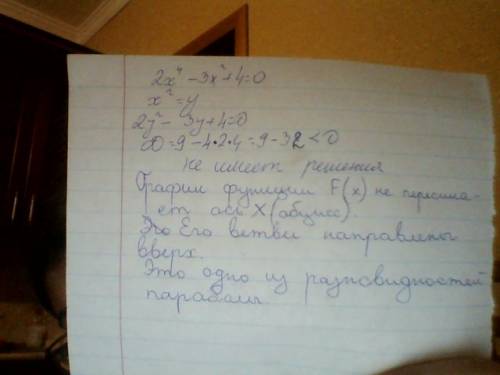 2x⁴ - 3x² + 4 = 0
x² = y
2y² - 3y + 4 = 0
D = 9 - 4 · 2 · 4 = 9 - 32 < 0
не имеет решения
График функции F(x) не пересика-
ет ась X (абцисс).
Его ветви направлены
вверх.
Это одно из разновидностей
параболы.